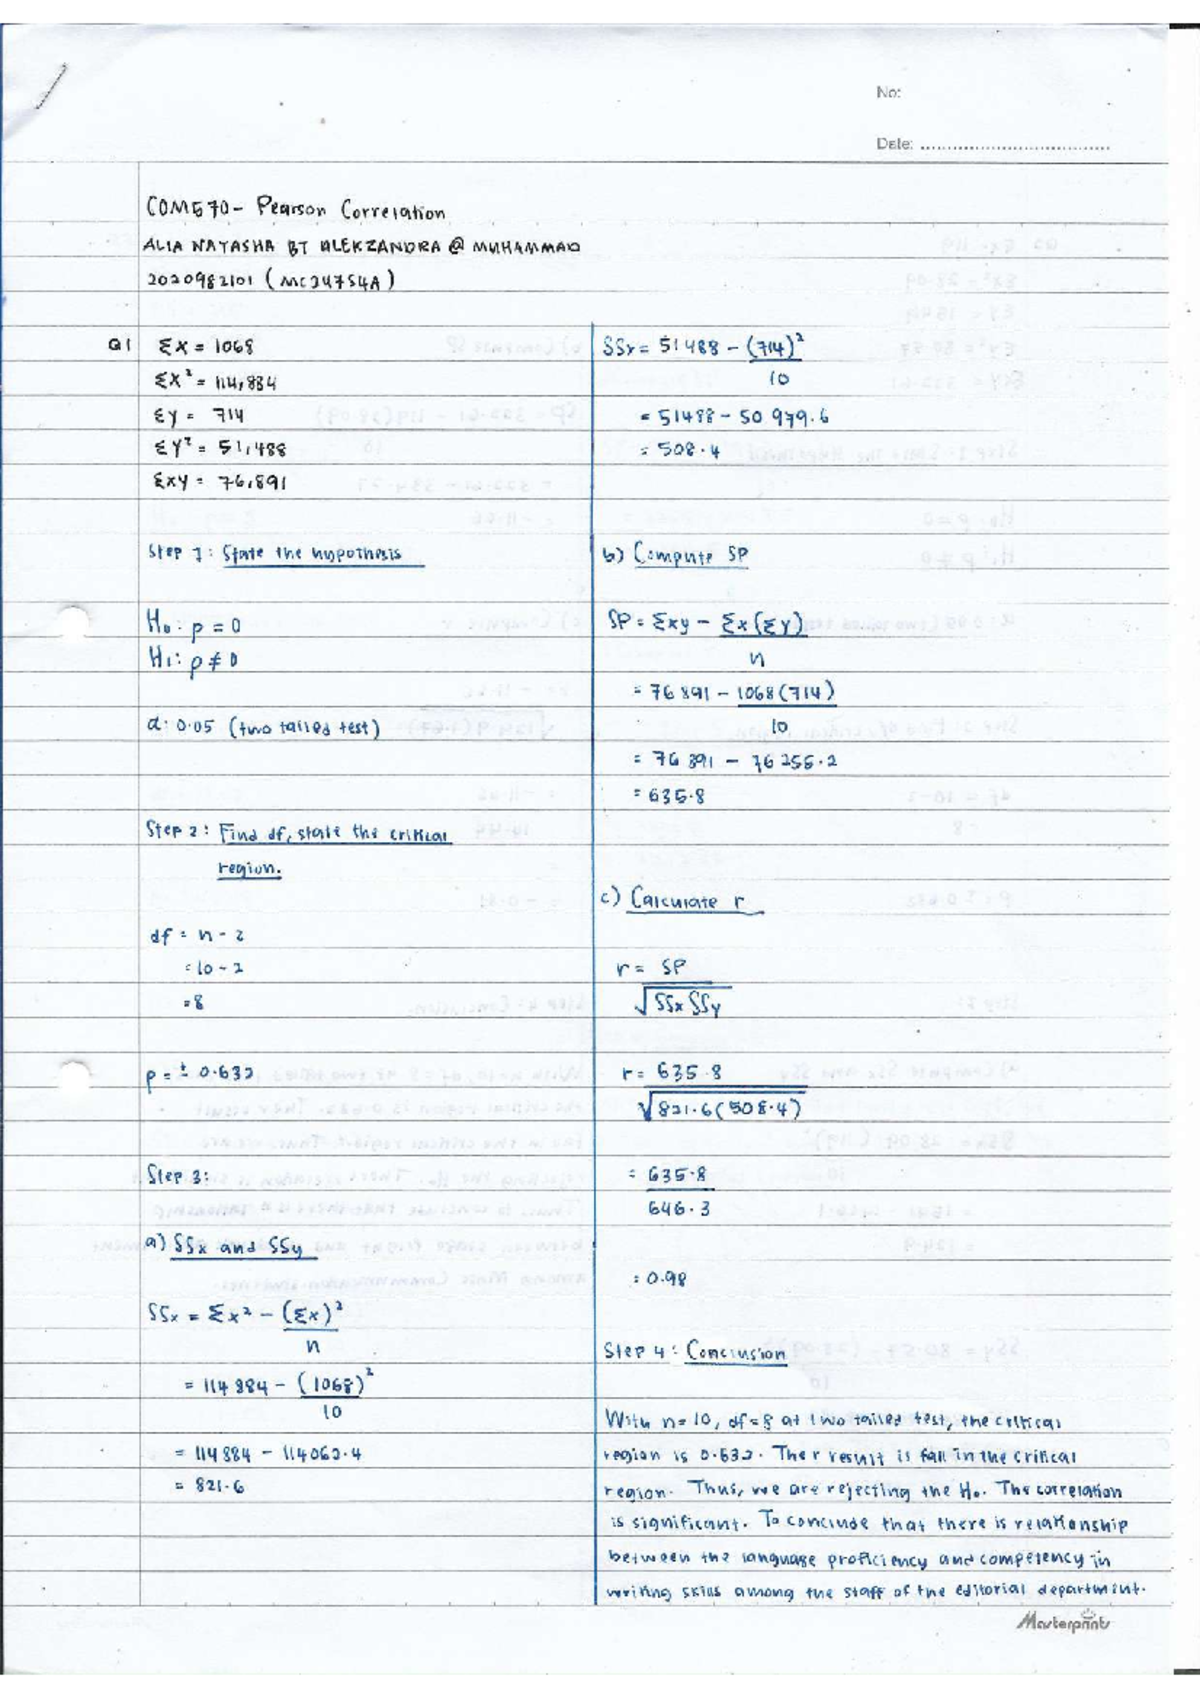 No:
Date:
COM570- Pearson Correlation
ALIA NATASHA BT ALEKZANDRA @ MUHAMMAD
2020982101 (MC24754A)
Q1 Σx = 1068
Σx² = 114,884
Σy = 714
Σy² = 51,488
Σxy = 76,891
Step 1: State the hypothesis
H₀: p = 0
H₁: p ≠ 0
α: 0.05 (two tailed test)
Step 2: Find df, state the critical
region.
df = n - 2
= 10 - 2
= 8
p = ± 0.632
Step 3:
a) SSx and SSy
SSx = Σx² - (Σx)²
n
= 114884 - (1068)²
10
= 114884 - 114062.4
= 821.6
SSy = 51488 - (714)²
10
= 51488 - 50979.6
= 508.4
b) Compute SP
SP = Σxy - Σx(Σy)
n
= 76891 - 1068(714)
10
= 76891 - 76255.2
= 635.8
c) Calculate r
r = SP
√SSx SSy
r = 635.8
√821.6(508.4)
= 635.8
646.3
= 0.98
Step 4: Conclusion
With n=10, df=8 at two tailed test, the critical
region is 0.632. The r result is fall in the critical
region. Thus, we are rejecting the H₀. The correlation
is significant. To conclude that there is relationship
between the language proficiency and competency in
writing skills among the staff of the editorial department.
Masterprints